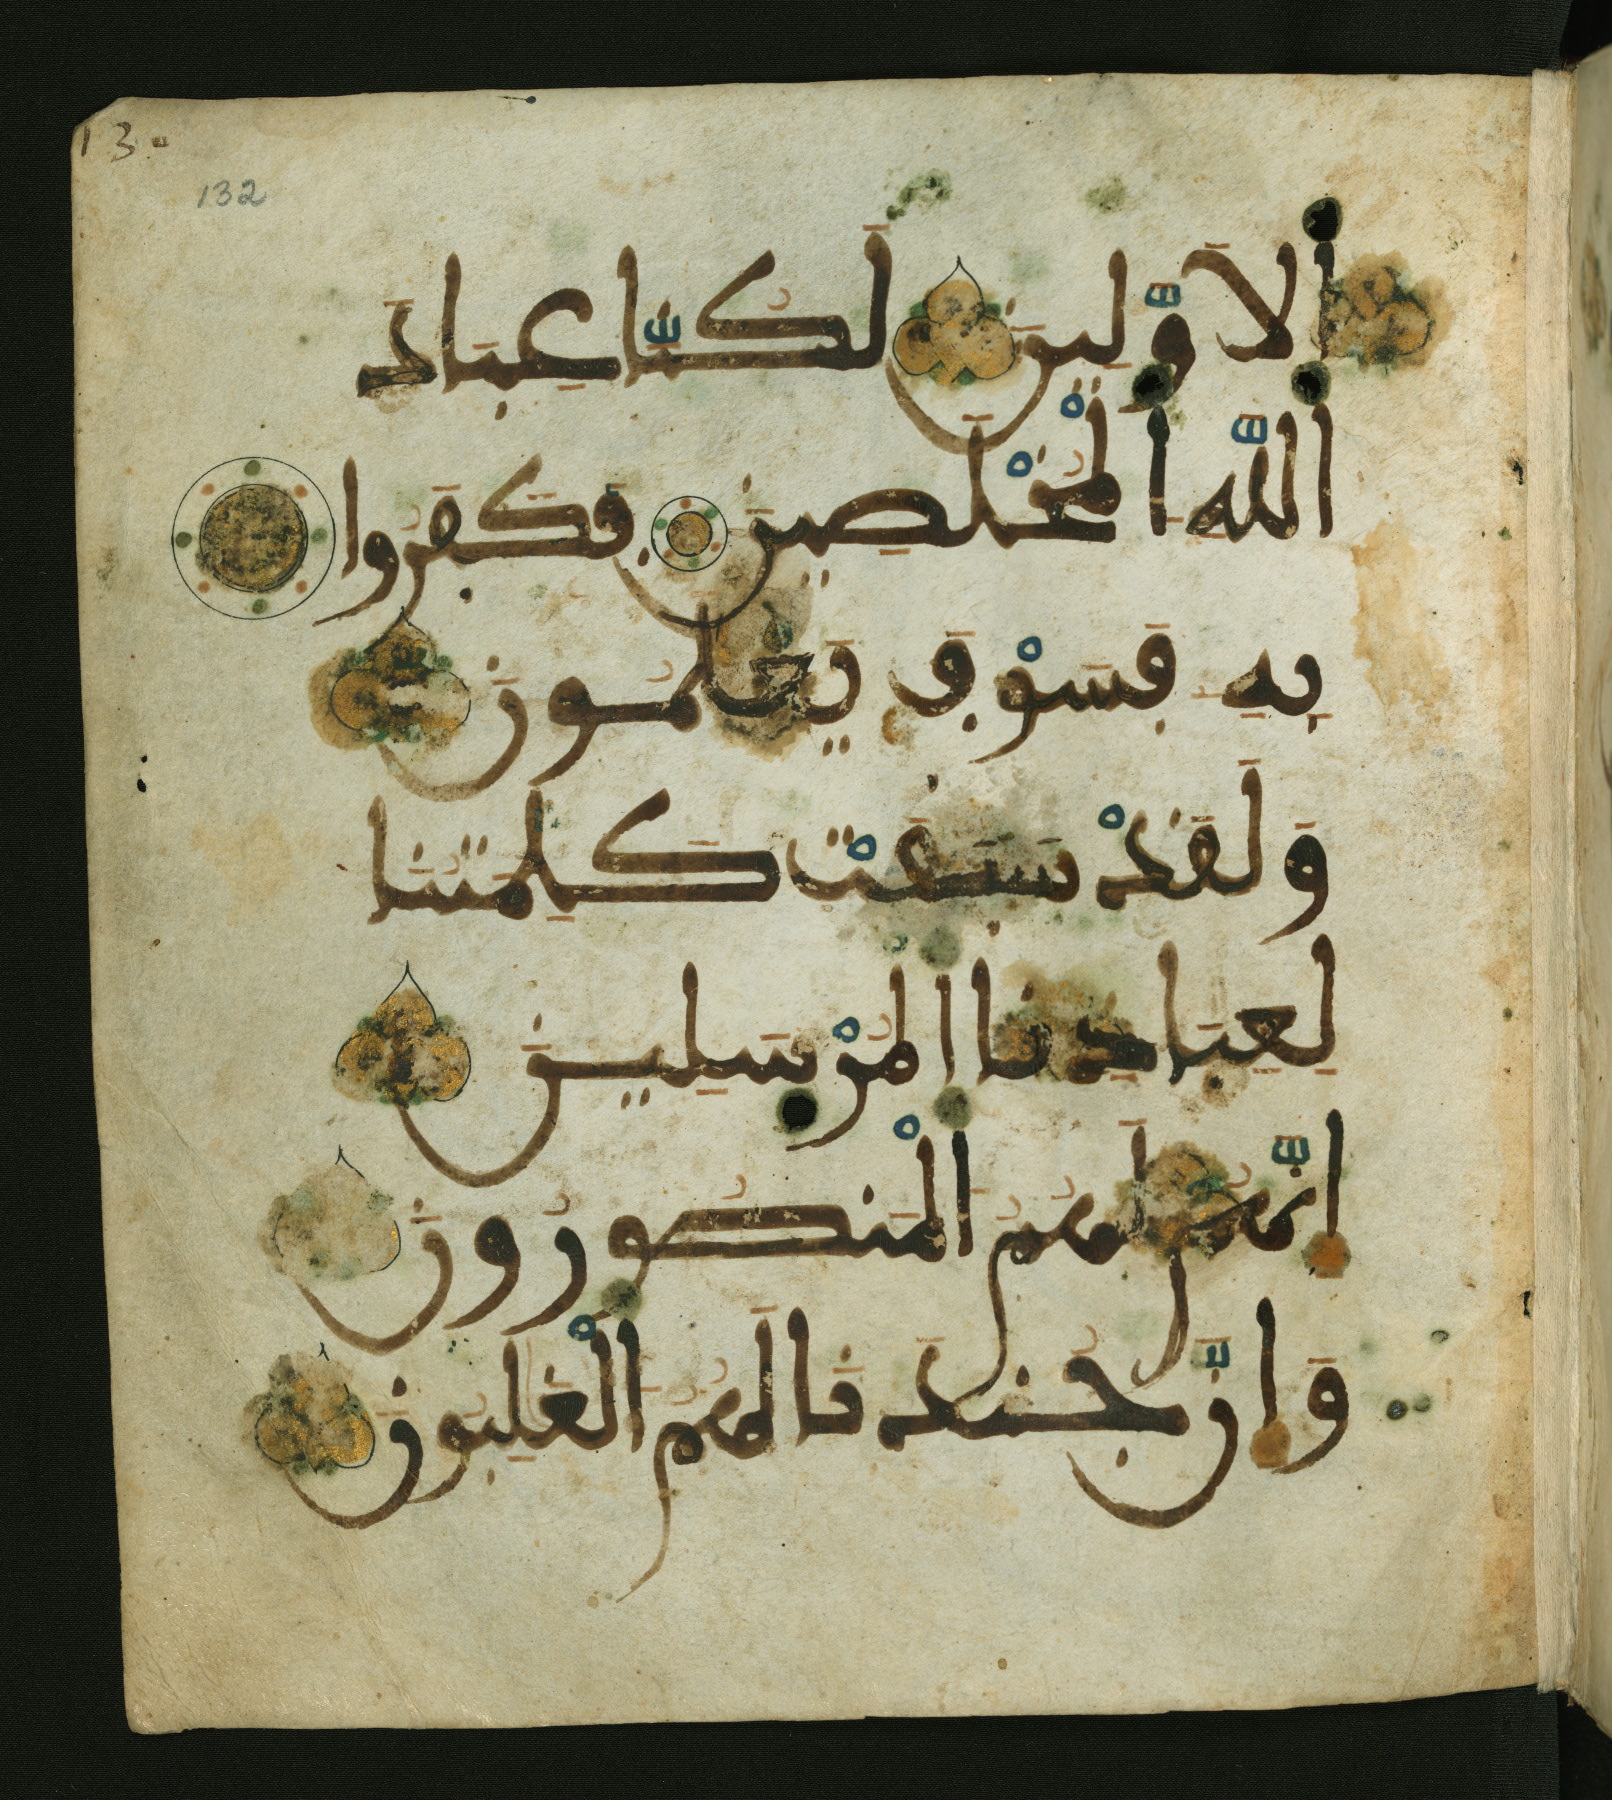 130
132
اَلاَوَّلِينَ لَكُنَّا عِبَادَ
اَللَّهِ اِ۬لْمُخْلَصِينَ فَكَفَرُوا
بِهِ فَسَوْفَ يَعْلَمُونَ
وَلَقَدْ سَبَقَتْ كَلِمَتُنَا
لِعِبَادِنَا اَلْمُرْسَلِينَ
إِنَّهُمْ لَهُمُ اُلْمَنصُورُونَ
وَإِنَّ جُندَنَا لَهُمُ اُلْغَٰلِبُونَ